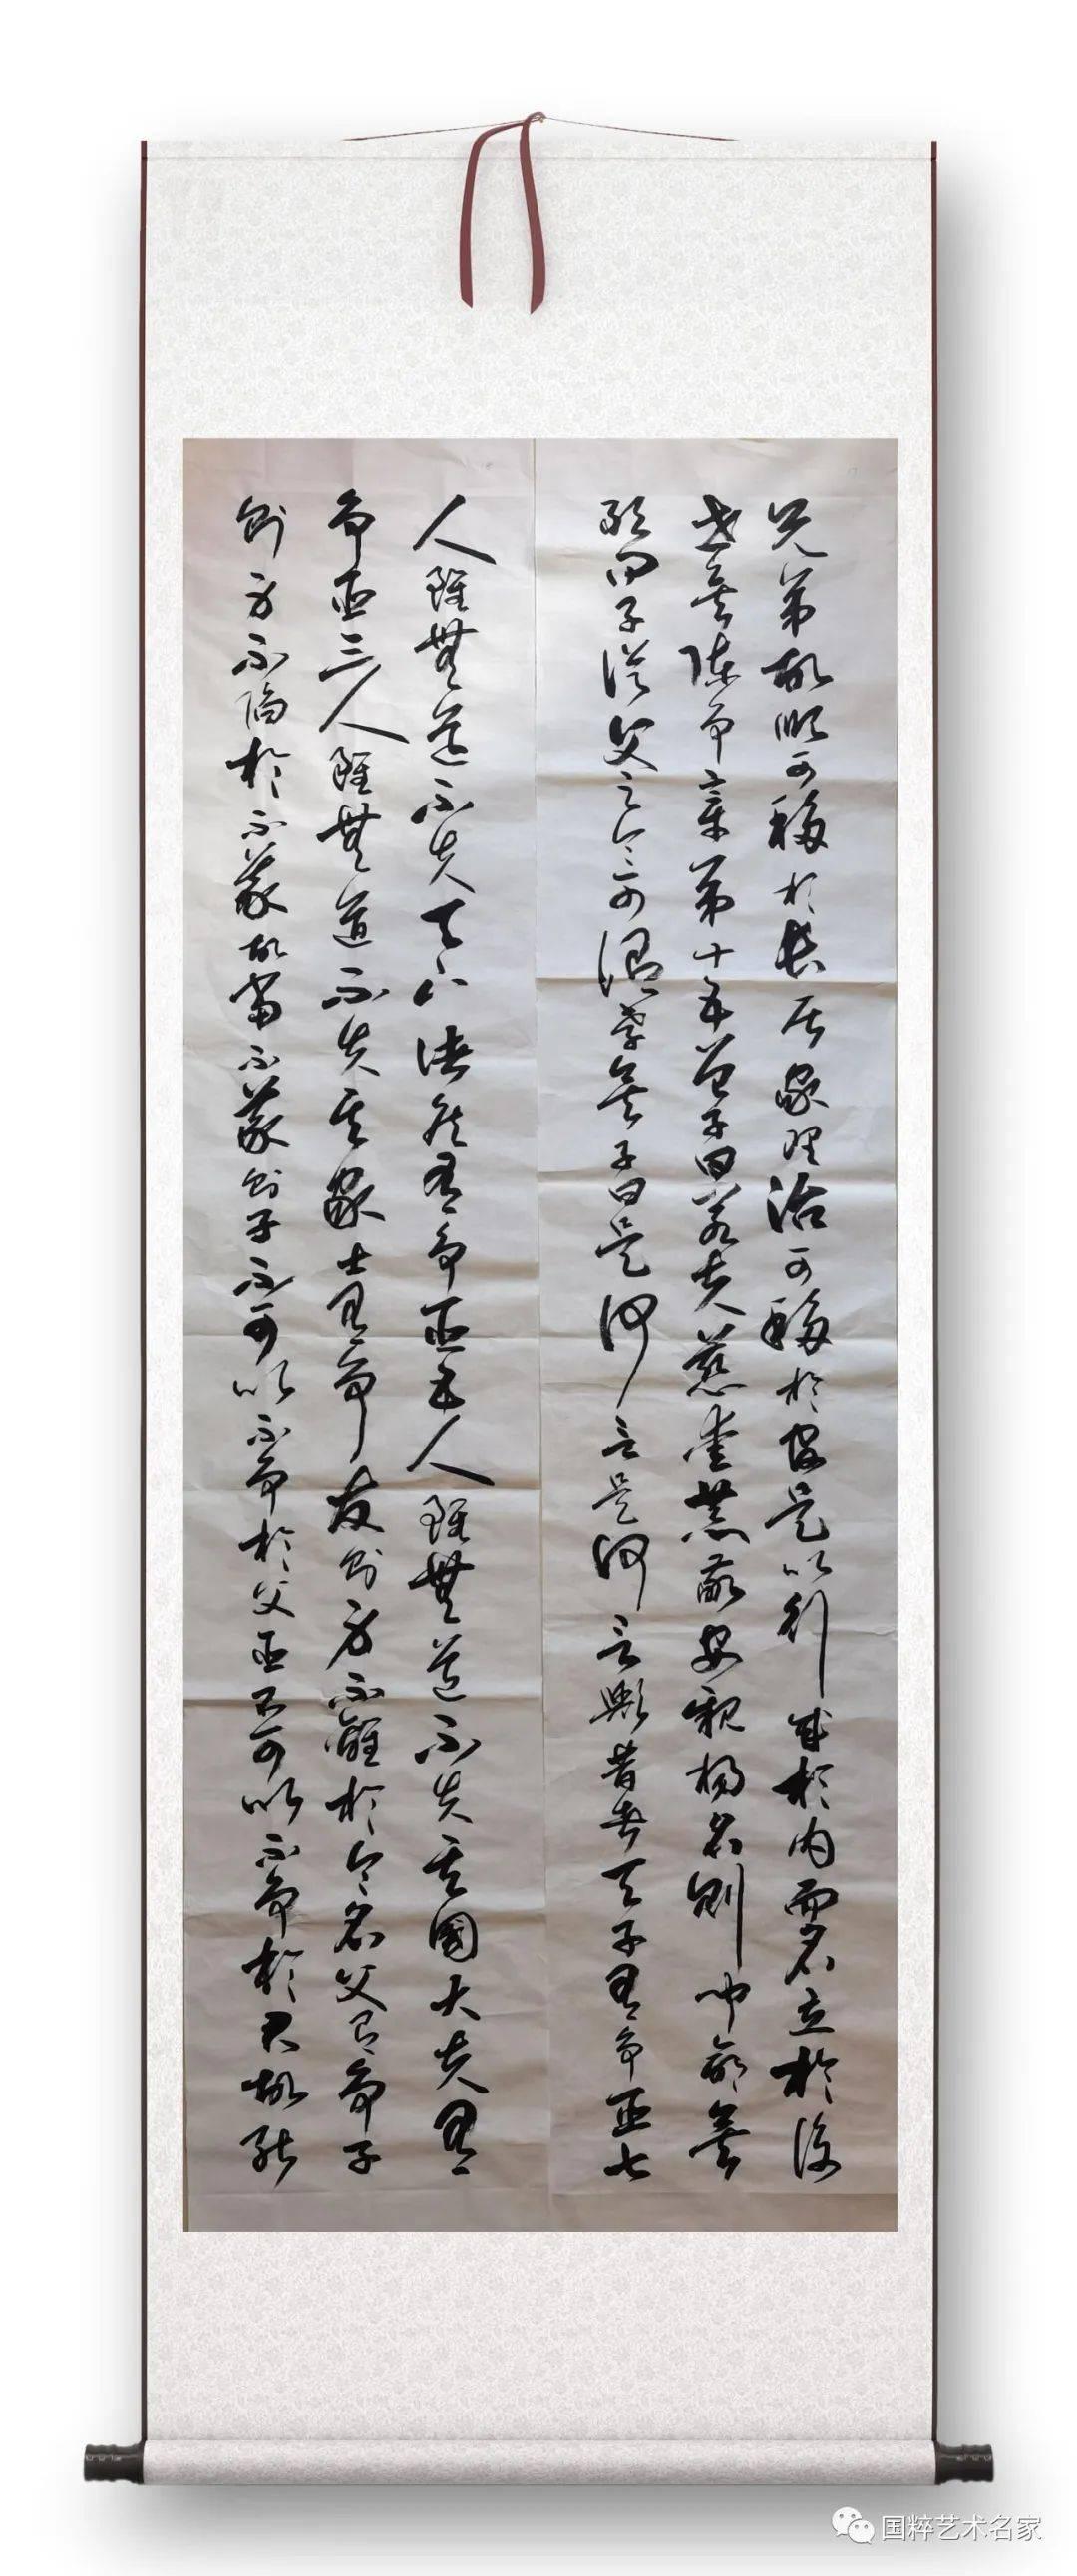 兄弟故順可移於長居家理治可移於官是以行成於內而名立於後
世矣諫爭章第十五曾子曰若夫慈愛恭敬安親揚名則聞命矣
敢問子從父之令可謂孝矣子曰是何言是何言與昔者天子有爭臣七
人雖無道不失天下諸侯有爭臣五人雖無道不失其國大夫有
爭臣三人雖無道不失其家士有爭友則身不離於令名父有爭子
則身不陷於不義故當不義則子不可以不爭於父臣不可以不爭於君故
国粹艺术名家